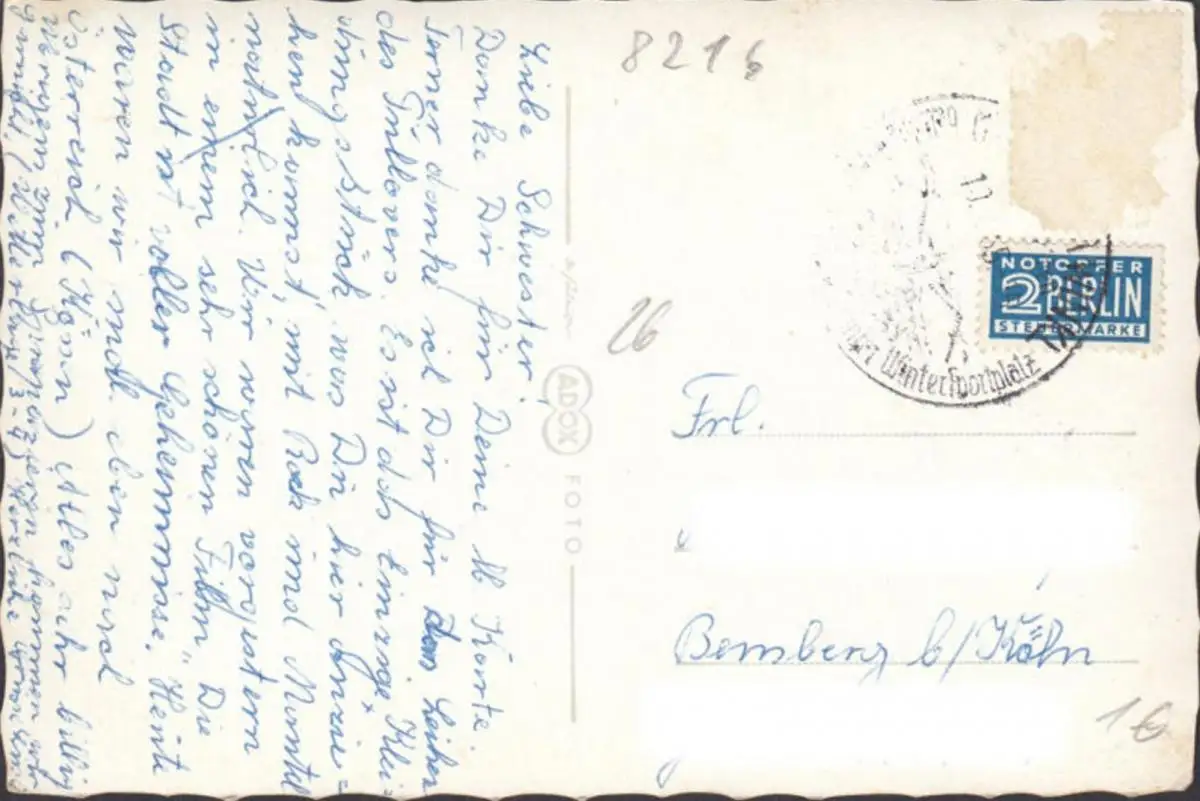 Liebe Schwester!
Danke Dir für Deine lb Karte.
Ferner danke ich Dir für das Leihen
des Pullovers. Es ist das Einzige Klei-
dungsstück, was Du hier anzie=
hen kannst, mit Rock und Mantel
natürlich. Wir waren vorgestern
in einem sehr schönen Film „Die
Stadt ist voller Geheimnisse." Heute
waren wir mal eben nach
Österreich
alles sehr billig
herzliche
ADOX FOTO
8216
26
Wintersportplatz
NOTOPFER
2 BERLIN
STEUERMARKE
Frl.
Bemberg b/Köln
1€